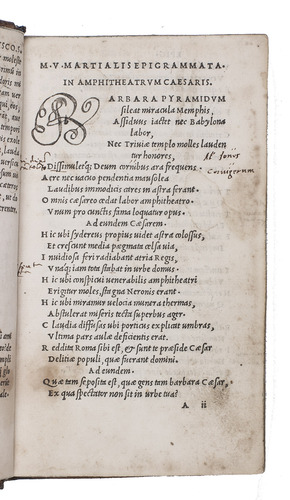 M.V.MARTIALIS EPIGRAMMATA.
IN AMPHITHEATRVM CAESARIS.
BARBARA PYRAMIDVM
sileat miracula Memphis,
Assiduus iactet nec Babylona
labor,
Nec Triuiæ templo molles lauden
tur honores,
Dissimuletq; Deum cornibus ara frequens.
Aere nec uacuo pendentia mausolea
Laudibus immodicis cares in astra ferant.
Omnis cæsareo cedat labor amphitheatro.
Vnum pro cunctis fama loquatur opus.
Ad eundem Cæsarem.
Hic ubi sydereus propius uidet astra colossus,
Et crescunt media pegmata celsa uia,
Inuidiosa feri radiabant atria Regis,
Vnaq; iam tota stabat in urbe domus.
Hic ubi conspicui uenerabilis amphitheatri
Erigitur moles, stagna Neronis erant.
Hic ubi miramur uelocia munera thermas,
Abstulerat miseris tecta superbus ager.
Claudia diffusas ubi porticus explicat umbras,
Vltima pars aulæ deficientis erat.
Reddita Roma sibi est, & sunt te præside Cæsar
Delitiæ populi, quæ fuerant domini.
Ad eundem.
Quæ tam seposita est, quæ gens tam barbara Cæsar,
Ex qua spectator non sit in urbe tua?
A ii